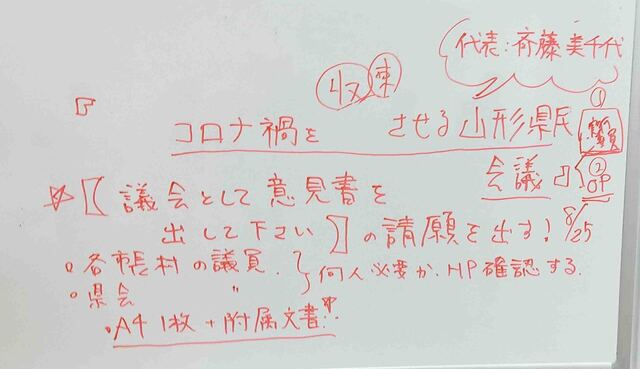 代表：斉藤美千代
収束
コロナ禍を させる山形県民
① 議員
会議 ② HP
☆【議会として意見書を
出して下さい】の請願を出す！ 8/25
・各市長村の議員
・県会 〃
何人必要か、HP確認する.
・A4 1枚＋附属文書